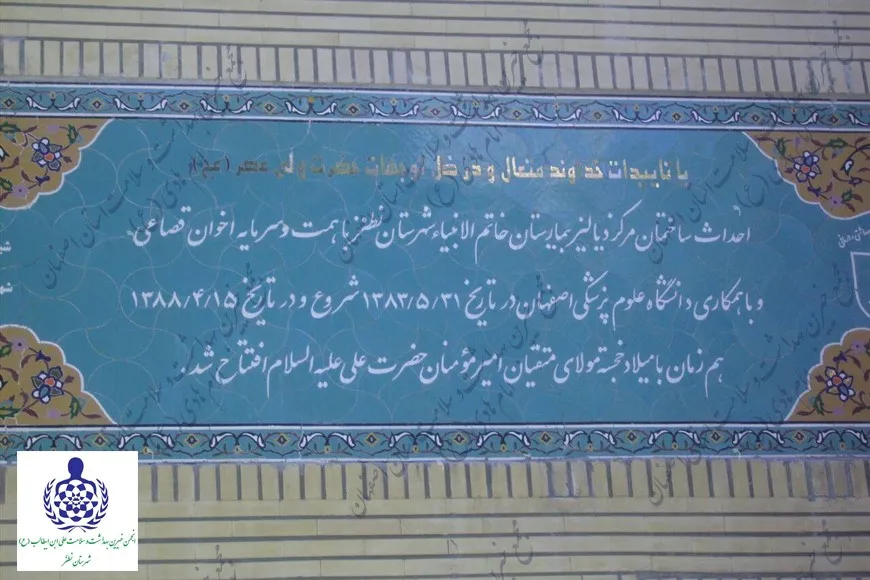 با تاییدات خداوند متعال و در ظل توجهات حضرت ولی عصر (عج)
احداث ساختمان مرکز دیالیز بیمارستان خاتم الانبیاء شهرستان نطنز با همت و سرمایه اخوان قصاعی
و با همکاری دانشگاه علوم پزشکی اصفهان در تاریخ ۱۳۸۳/۵/۳۱ شروع و در تاریخ ۱۳۸۸/۴/۱۵
هم زمان با میلاد خجسته مولای متقیان امیر مؤمنان حضرت علی علیه السلام افتتاح شد.
انجمن خیرین بهداشت و سلامت علی ابن ابیطالب (ع)
شهرستان نطنز